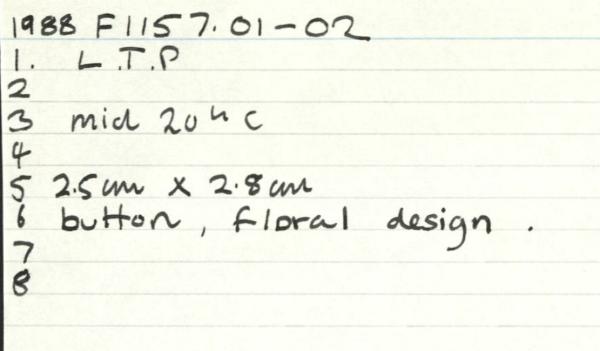 1988 F1157.01-02
1. L.T.P
2
3 mid 20th C
4
5 2.5cm x 2.8cm
6 button, floral design.
7
8